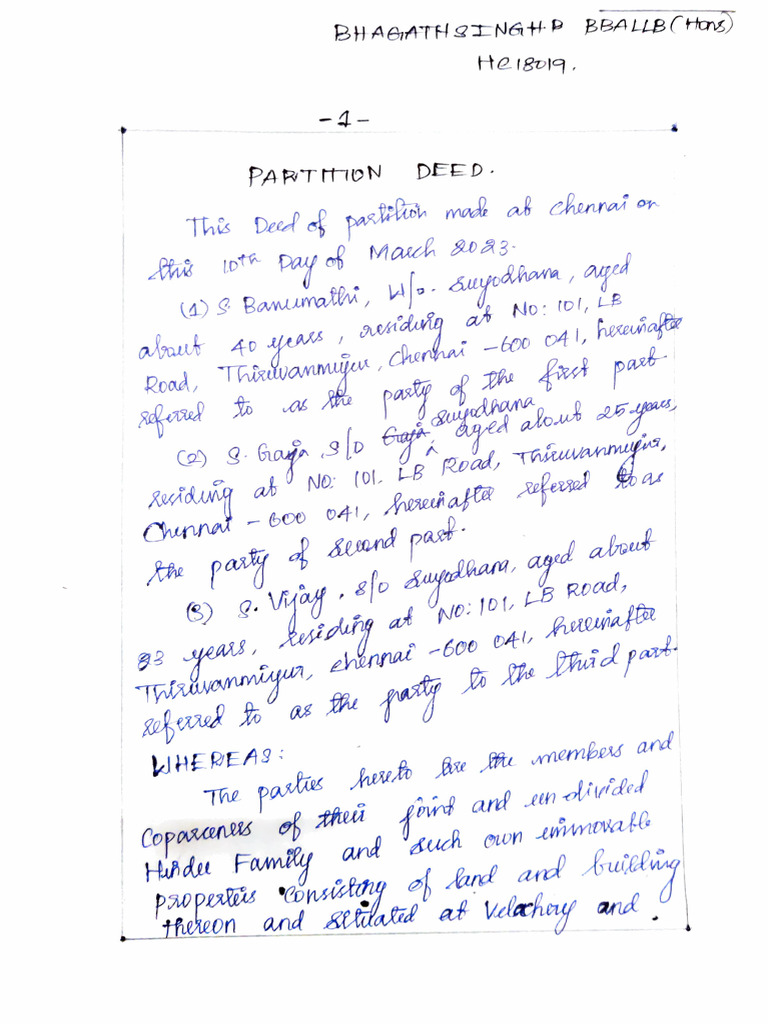 BHAGATHSINGH.P BBALLB(Hons)
HC18019.
-1-
PARTITION DEED.
This Deed of partition made at Chennai on
this 10th Day of March 2023.
(1) S Banumathi, W/o. Suyodhana, aged
about 40 years, residing at No: 101, LB
Road, Thiruvanmiyur, Chennai -600 041, hereinafter
referred to as the party of the first part.
(2) S. Gaja, S/O Gaja Suyodhana aged about 25 years,
residing at No: 101, LB Road, Thiruvanmiyur,
Chennai -600 041, hereinafter referred to as
the party of second part.
(3) S. Vijay. S/O Suyodhana, aged about
23 years, residing at No:101, LB Road,
Thiruvanmiyur, Chennai -600 041, hereinafter
referred to as the party to the third part.
WHEREAS:
The parties hereto are the members and
Coparceners of their joint and un-divided
Hindu Family and such own immovable
properteis Consisting of land and building
thereon and situated at Velachery and